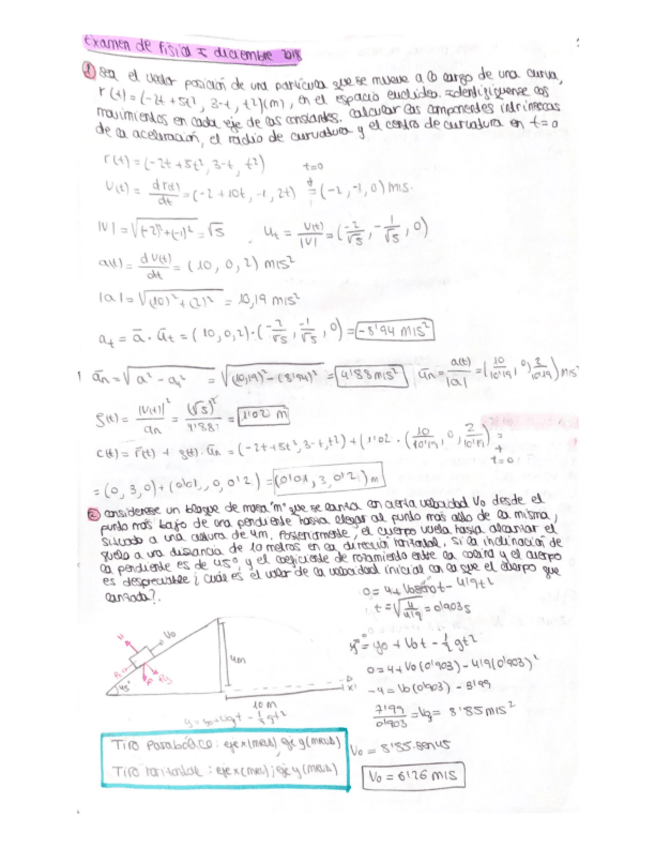 Examen de física I diciembre 2018
① Sea el vector posición de una partícula que se mueve a lo largo de una curva,
r(t)=(-2t+5t², 3-t, t²)(m), en el espacio euclídeo. Identifíquense los
movimientos en cada eje de las constantes. Calcular las componentes intrínsecas
de la aceleración, el radio de curvatura y el centro de curvatura en t=0
r(t)=(-2t+5t², 3-t, t²) t=0
v(t)= dr(t)/dt =(-2+10t, -1, 2t) = (-2,-1,0) m/s.
|v|=√(-2)²+(-1)² = √5 . Ut = v(t)/|v| = (-2/√5, -1/√5, 0)
a(t)= dv(t)/dt = (10, 0, 2) m/s²
|a|=√(10)²+(2)² = 10,19 m/s²
at = ā · ūt = (10,0,2)·(-2/√5, -1/√5, 0) = -8'94 m/s²
ān=√a²-at² = √(10,19)²-(8'94)² = 4'88 m/s² ūn= a(t)/|a| =(10/10'19, 0, 2/10'19) m/s²
ρ(t)= |v(t)|²/an = (√5)²/4'88 = 1'02 m
c(t)= r(t) + ρ(t)·ūn = (-2t+5t², 3-t, t²)+(1'02 · (10/10'19, 0, 2/10'19) =
t=0
= (0,3,0)+(0'01, 0, 0'2) = (0'01, 3, 0'2) m
② Considérese un bloque de masa "m" que se lanza con cierta velocidad V₀ desde el
punto más bajo de una pendiente hasta llegar al punto más alto de la misma,
situado a una altura de 4m. Posteriormente, el cuerpo vuela hasta alcanzar el
suelo a una distancia de 10 metros en la dirección horizontal. Si la inclinación de
la pendiente es de 45º y el coeficiente de rozamiento entre la cuña y el cuerpo
es despreciable ¿cuál es el valor de la velocidad inicial con la que el cuerpo que
lanzada?.
t=√4/4'9 = 0'903s
y = y₀ + V₀t - ½gt²
0=4+V₀(0'903)-4'9(0'903)²
V₀
45º
4m
10 m
7'99/0'903 = V₀ = 8'85 m/s²
y = y₀+V₀yt - ½gt²
Tiro parabólico: eje x (MRU) eje y (MRUA)
Tiro horizontal: eje x (MRU); eje y (MRUA)
V₀ = 8'85.sen45
V₀ = 6'26 m/s